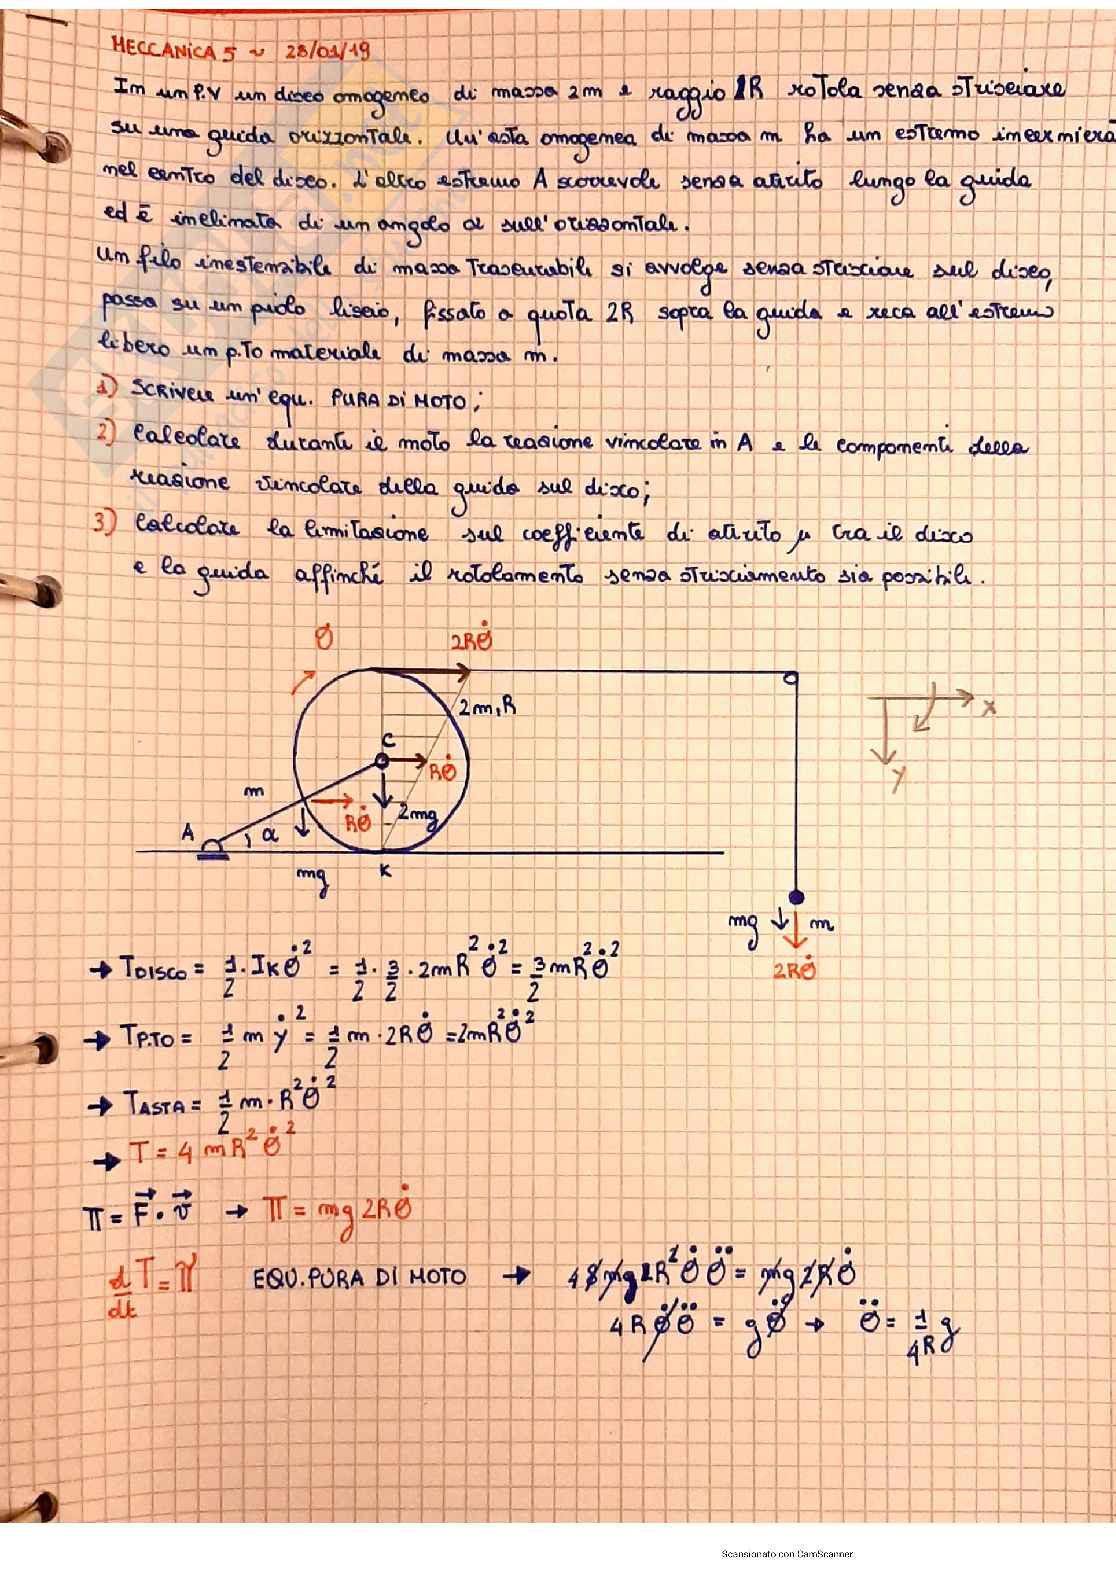 MECCANICA 5 ~ 28/01/19
In un P.V un disco omogeneo di massa 2m e raggio R rotola senza strisciare
su una guida orizzontale. Un'asta omogenea di massa m ha un estremo incernierà
nel centro del disco. L'altro estremo A scorrevole senza attrito lungo la guida
ed è inclinata di un angolo α sull'orizzontale.
un filo inestensibile di massa trascurabile si avvolge senza strisciare sul disco,
passa su un piolo liscio, fissato a quota 2R sopra la guida e reca all'estremo
libero un p.to materiale di massa m.
1) SCRIVERE un'equ. PURA DI MOTO;
2) Calcolare durante il moto la reazione vincolare in A e le componenti della
reazione vincolare della guida sul disco;
3) Calcolare la limitazione sul coefficiente di attrito μ tra il disco
e la guida affinché il rotolamento senza strisciamento sia possibile.
θ 2Rθ̇
2m, R
x
C
Rθ̇
y
m
Rθ̇ 2mg
A α
mg K
mg m
2Rθ̇
→ TDISCO = 1/2 · IK θ̇² = 1/2 · 3/2 · 2mR²θ̇² = 3/2 mR²θ̇²
→ TP.TO = 1/2 m ẏ² = 1/2 m · 2Rθ̇ = 2mR²θ̇²
→ TASTA = 1/2 m · R²θ̇²
→ T = 4 mR²θ̇²
π = F⃗ · v⃗ → π = mg2Rθ̇
d/dt T = π EQU. PURA DI MOTO → 4 8 mg 2R² θ̇ θ̈ = mg2Rθ̇
4Rθ̇θ̈ = gθ̇ → θ̈ = 1/4R g
Scansionato con CamScanner